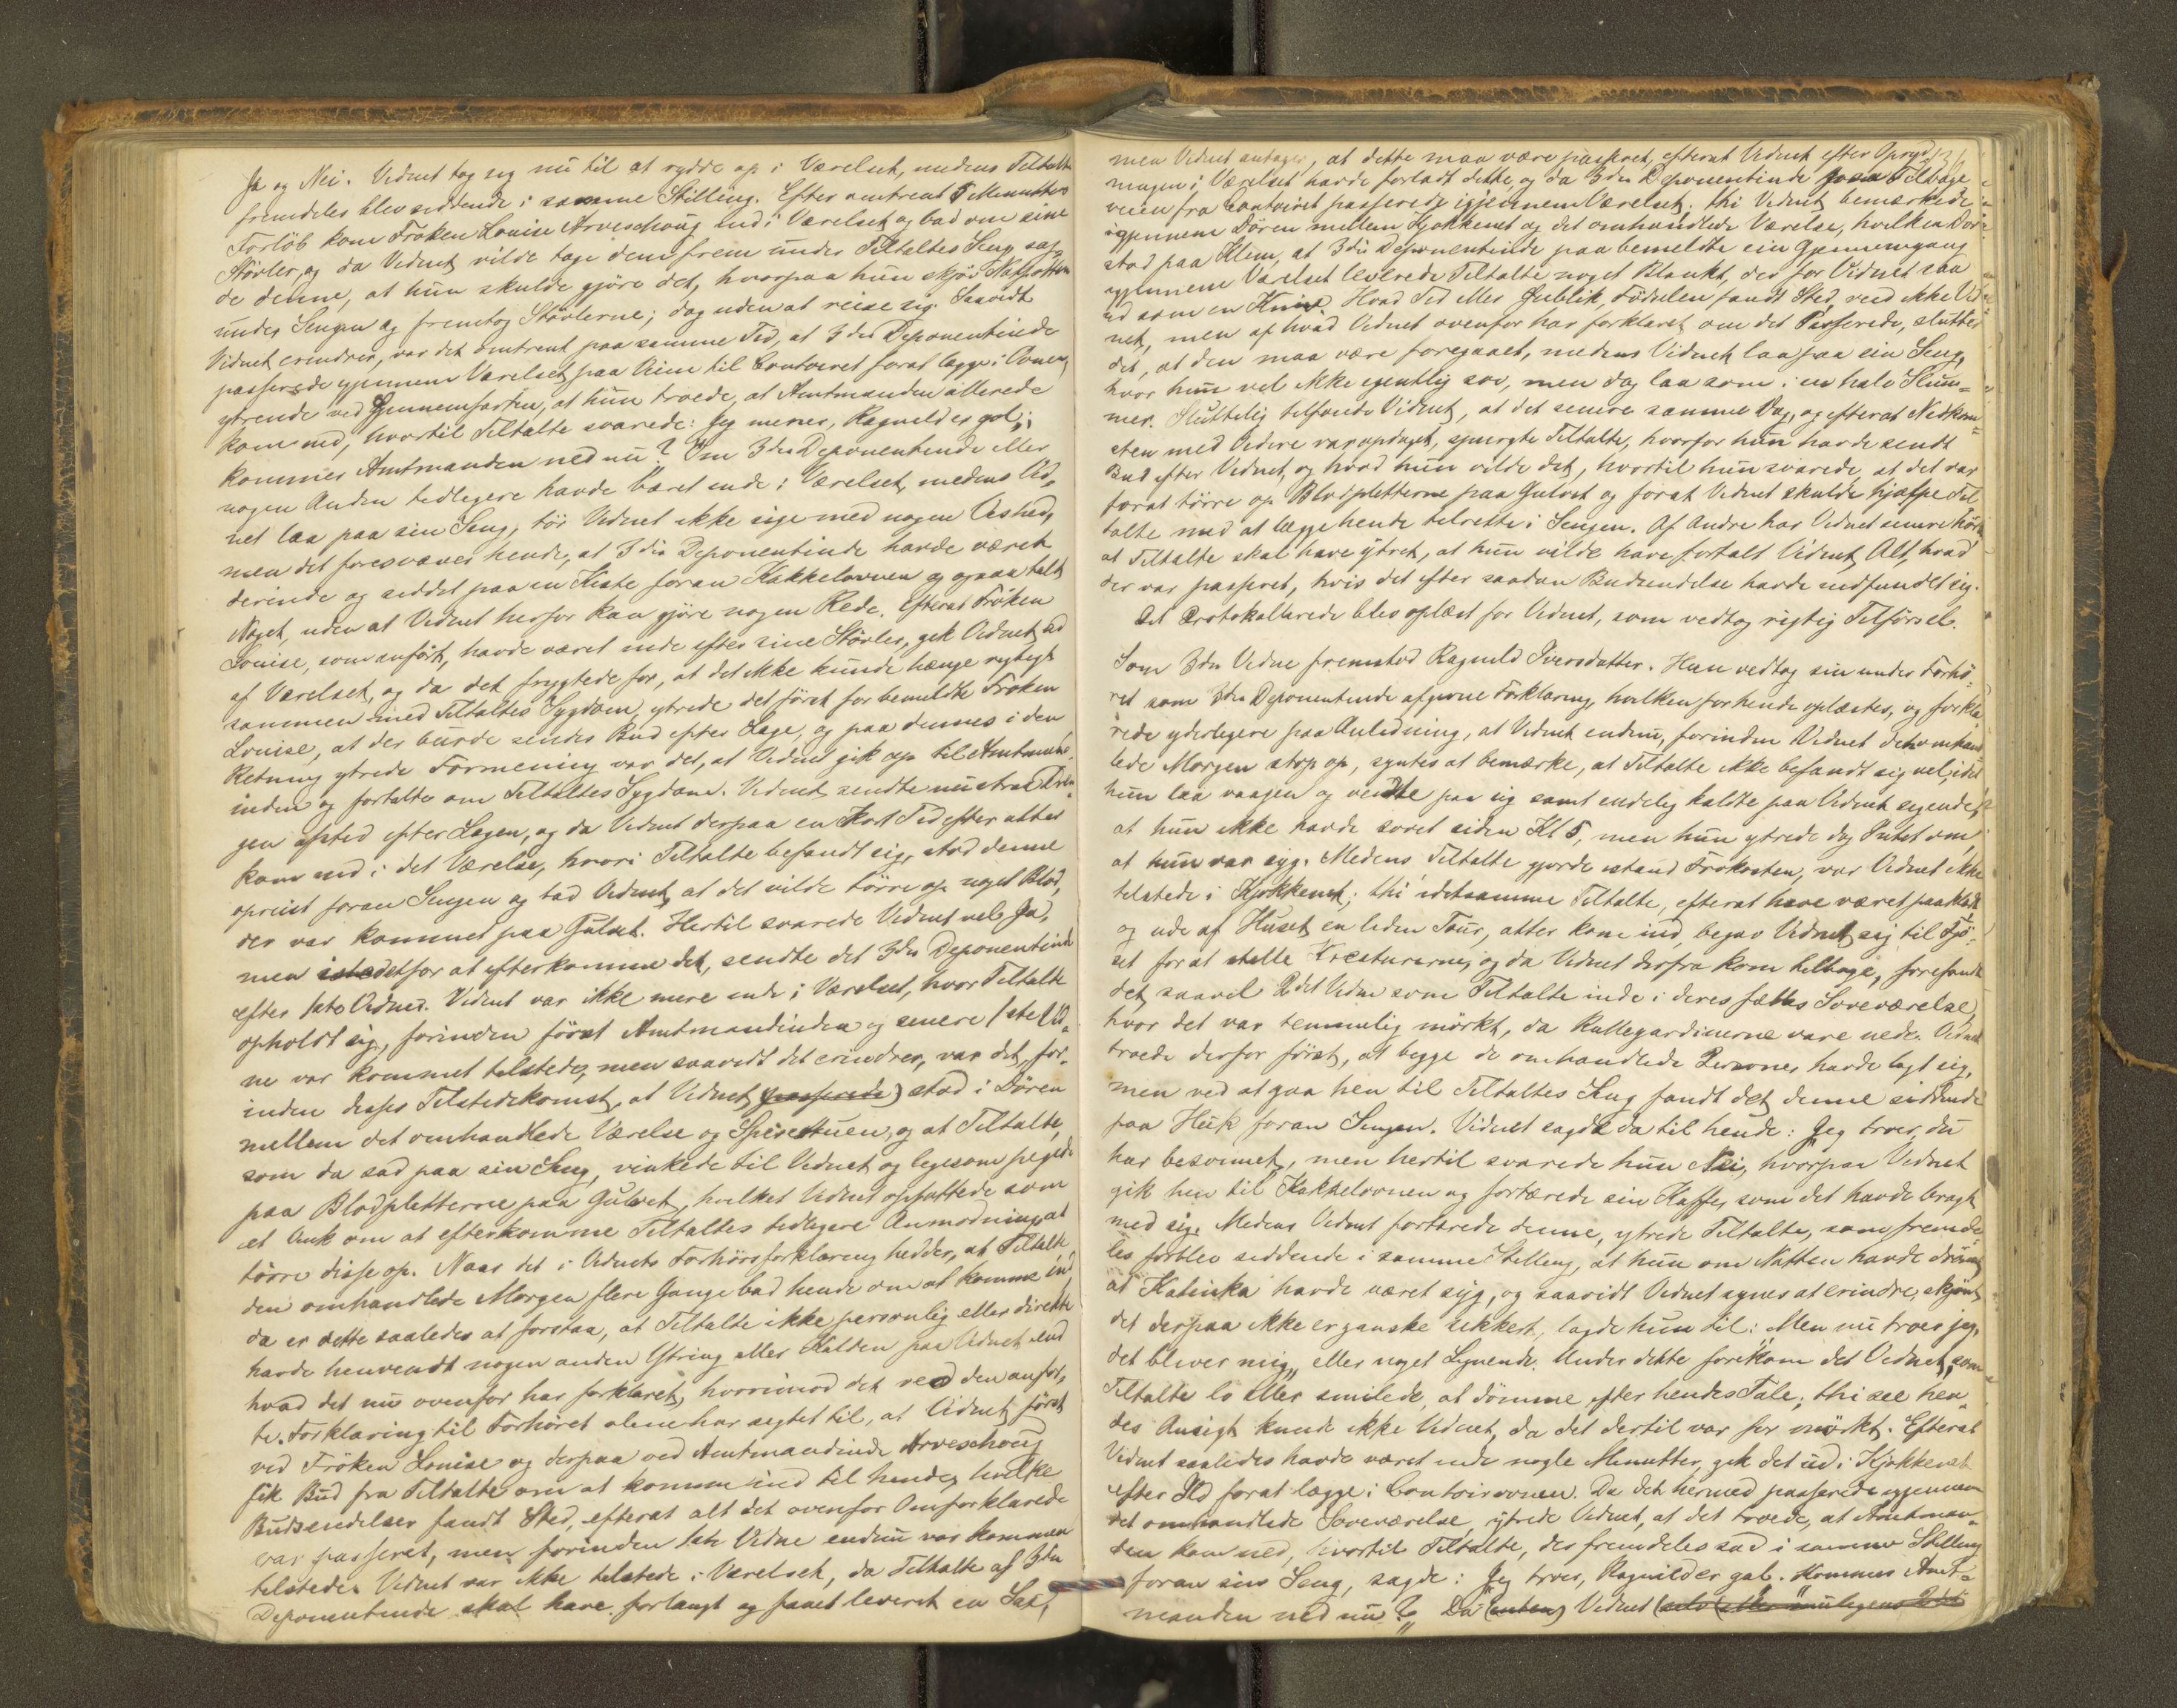 Ja og Nei. Vidnet tog sig nu til at rydde op i Værelset, medens Tiltalte
fremdeles blev siddende i samme Stilling. Efter omtrent 5 Minutters
Forløb kom Frøken Louise Arveschoug ind i Værelset og bad om sine
Støvler, og da Vidnet vilde tage dem frem under Tiltaltes Seng, sag-
de denne, at hun skulde gjøre det, hvorpaa hun skjøv Natpotten
under Sengen og fremtog Støvlerne; dog uden at reise sig. Saavidt
Vidnet erindrer, var det omtrent paa samme Tid, at 3die Deponentinde
passerede gjennem Værelset paa Veien til Contoiret forat lægge i Ovnen,
ytrende ved Gjennemfarten, at hun troede, at Amtmanden allerede
kom ned, hvortil Tiltalte svarede: Jeg mener, Ragnild er gal;
kommer Amtmanden ned nu?" Om 3die Deponentinde eller
nogen Anden tidligere havde været inde i Værelset, medens Vid-
net laa paa sin Seng, tør Vidnet ikke sige med nogen Vished,
men det foresvæver hende, at 3die Deponentinde havde været
derinde og siddet paa en Kiste foran Kakkelovnen og ogsaa talt
Noget, uden at Vidnet herfor kan gjøre nogen Rede. Efterat Frøken
Louise, som anført, havde været inde efter sine Støvler, gik Vidnet ud
af Værelset, og da det frygtede for, at det ikke kunde hænge rigtigt
sammen med Tiltaltes Sygdom, ytrede det først for bemeldte Frøken
Louise, at der burde sendes Bud efter Læge, og paa dennes i den
Retning ytrede Formening var det, at Vidnet gik op til Amtmand-
inden og fortalte om Tiltaltes Sygdom. Vidnet sendte nu strax Dren-
gen afsted efter Lægen, og da Vidnet derpaa en kort Tid efter atter
kom ind i det Værelse, hvori Tiltalte befandt sig, stod denne
opreist foran Sengen og bad Vidnet, at det vilde tørre op noget Blod,
der var kommet paa Gulvet. Hertil svarede Vidnet vel Ja,
men istedetfor at efterkomme det, sendte det 3die Deponentinde
efter 1ste Vidne. Vidnet var ikke mere inde i Værelset, hvor Tiltalte
opholdt sig, forinden først Amtmandinden og senere 1ste Vid-
ne var kommet tilstede, men saavidt det erindrer, var det, for-
inden disses Tilstedekomst, at Vidnet (passerede) stod i Døren
mellem det omhandlede Værelse og Spisestuen, og at Tiltalte,
som da sad paa sin Seng, vinkede til Vidnet og ligesom pegede
paa Blodpletterne paa Gulvet, hvilket Vidnet opfattede som
et Vink om at efterkomme Tiltaltes tidligere Anmodning at
tørre disse op. Naar det i Vidnets Forhørsforklaring hedder, at Tiltalte
den omhandlede Morgen flere Gange bad hende om at komme ind
da er dette saaledes at forstaa, at Tiltalte ikke personlig eller direkte
havde henvendt nogen anden Ytring eller Kalden paa Vidnet end
hvad det nu ovenfor har forklaret, hvorimod det ved den anfør-
te Forklaring til Forhøret alene har sigtet til, at Vidnet først
ved Frøken Louise og derpaa ved Amtmandinde Arveschoug
fik Bud fra Tiltalte om at komme ind til hende, hvilke
Budsendelser fandt Sted, efterat alt det ovenfor Omforklarede
var passeret, men forinden 1ste Vidne endnu var kommen
tilstede. Vidnet var ikke tilstede i Værelset, da Tiltalte af 3die
Deponentinde skal have forlangt og faaet leveret en Sax,
men Vidnet antager, at dette maa være passeret, efterat Vidnet efter Opryd-
ningen i Værelset havde forladt dette og da 3die Deponentinde paa Tilbage-
veien fra Contoiret passerede igjennem Værelset. thi Vidnet bemærkede
igjennem Døren mellem Kjøkkenet og det omhandlede Værelse, hvilken Dør
stod paa Klem, at 3die Deponentinde paa bemeldte sin Gjennemgang
gjennem Værelset leverede Tiltalte noget Blankt, der for Vidnet saa
ud som en Kniv. Hvad Tid eller Øieblik, Fødselen fandt Sted, veed ikke Vid-
net, men af hvad Vidnet ovenfor har forklaret om det Passerede, slutter
det, at den maa være foregaaet, medens Vidnet laa paa sin Seng,
hvor hun vel ikke egentlig sov, men dog laa som i en halv Slum-
mer. Sluttelig tilføiede Vidnet, at det senere samme Dag, og efterat Nedkom-
sten med Videre var opdaget, spurgte Tiltalte, hvorfor hun havde sendt
Bud efter Vidnet, og hvad hun vilde det, hvortil hun svarede, at det var
forat tørre op Blodpletterne paa Gulvet og forat Vidnet skulde hjælpe Til-
talte med at lægge hende tilrette i Sengen. Af Andre har Vidnet senere hørt
at Tiltalte skal have ytret, at hun vilde have fortalt Vidnet Alt, hvad
der var passeret, hvis det efter saadan Budsendelse havde indfundet sig.
Det Protokollerede blev oplæst for Vidnet, som vedtog rigtig Tilførsel.
Som 3die Vidne fremstod Ragnild Iversdatter. Hun vedtog sin under Forhø-
ret som 3die Deponentinde afgivne Forklaring, hvilken for hende oplæstes, og forkla-
rede yderligere paa Anledning, at Vidnet endnu, forinden Vidnet den omhand-
lede Morgen stod op, syntes at bemærke, at Tiltalte ikke befandt sig vel, idet
hun laa vaagen og vendte paa sig samt endelig kaldte paa Vidnet sigende,
at hun ikke havde sovet siden Kl 5, men hun ytrede dog Intet om
at hun var syg. Medens Tiltalte gjorde istand Frokosten, var Vidnet ikke
tilstede i Kjøkkenet; thi idetsamme Tiltalte, efterat have været paaklædt
og ude af Huset en liden Tour, atter kom ind, begav Vidnet sig til Fjø-
set for at stelle Kreaturerne, og da Vidnet derfra kom tilbage, forefandt
det saavel 2det Vidne som Tiltalte inde i deres fælles Soveværelse,
hvor det var temmelig mørkt, da Rullegardinerne vare nede. Vidnet
troede derfor først, at begge de omhandlede Personer havde lagt sig,
men ved at gaa hen til Tiltaltes Seng fandt det, denne siddende
paa Huk foran Sengen. Vidnet sagde da til hende: Jeg troer, du
har besvimet, men hertil svarede hun Nei, hvorpaa Vidnet
gik hen til Kakkelovnen og fortærede sin Kaffe, som det havde bragt
med sig. Medens Vidnet fortærede denne, ytrede Tiltalte, som fremde-
les forblev siddende i samme Stilling, at hun om Natten havde drømt
at Katinka havde været syg, og saavidt Vidnet synes at erindre, skjønt
det derpaa ikke er ganske sikkert, lagde hun til: "Men nu troer jeg,
det bliver mig" eller noget Lignende. Under dette forekom det Vidnet, som
Tiltalte lo eller smilede, at dømme efter hendes Tale; thi see hen-
des Ansigt kunde ikke Vidnet, da det dertil var for mørkt. Efterat
Vidnet saaledes havde været inde nogle Minutter, gik det ud i Kjøkkenet
efter Ild forat lægge i Contoirovnen. Da det hermed passerede igjennem
det omhandlede Soveværelse, ytrede Vidnet, at det troede, at Amtman-
den kom ned, hvortil Tiltalte, der fremdeles sad i samme Stilling
foran sin Seng, sagde: Jeg troer, Ragnild er gal. Kommer Amt-
manden ned nu?" Da (enten) Vidnet